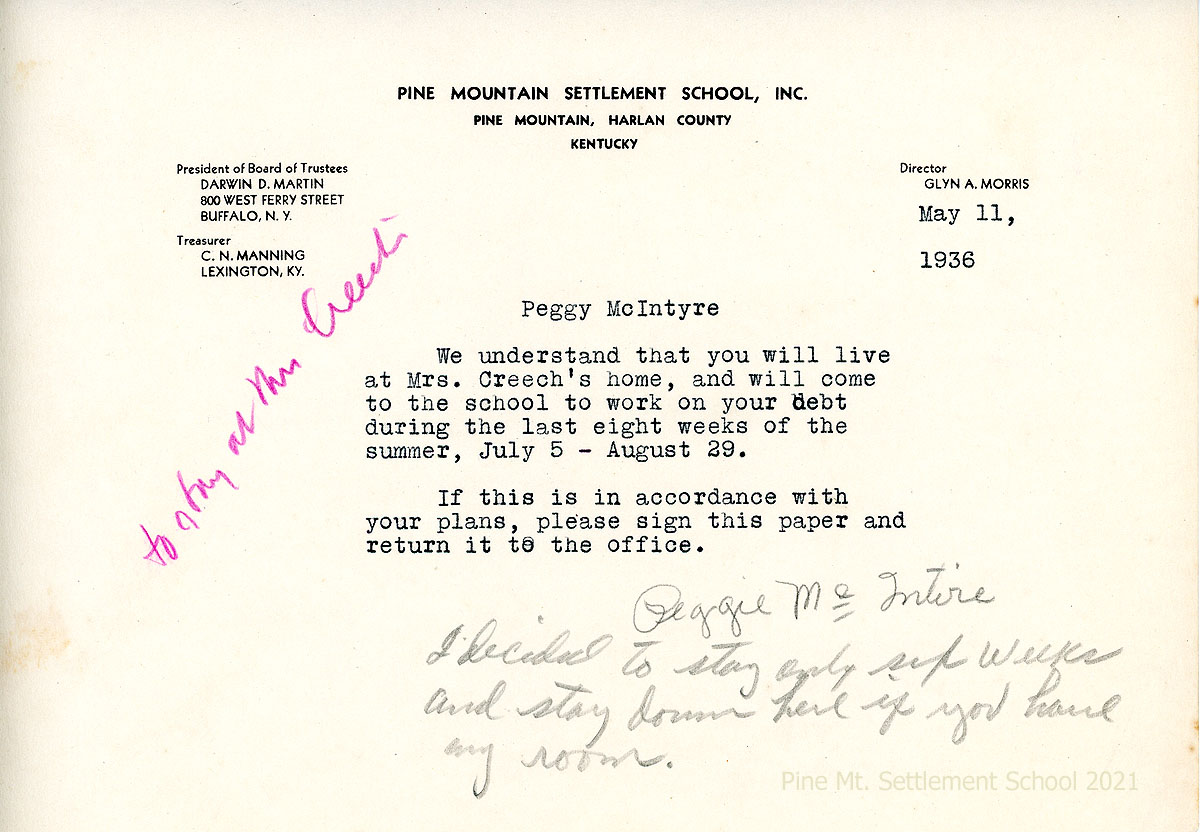 PINE MOUNTAIN SETTLEMENT SCHOOL, INC.
PINE MOUNTAIN, HARLAN COUNTY
KENTUCKY
President of Board of Trustees
DARWIN D. MARTIN
800 WEST FERRY STREET
BUFFALO, N. Y.
Treasurer
C. N. MANNING
LEXINGTON, KY.
Director
GLYN A. MORRIS
May 11,
1936
to stay at Mrs Creech
Peggy McIntyre
We understand that you will live
at Mrs. Creech's home, and will come
to the school to work on your debt
during the last eight weeks of the
summer, July 5 - August 29.
If this is in accordance with
your plans, please sign this paper and
return it to the office.
Peggie Mc Intire
I decided to stay only six weeks
and stay down here if you have
any room.
Pine Mt. Settlement School 2021